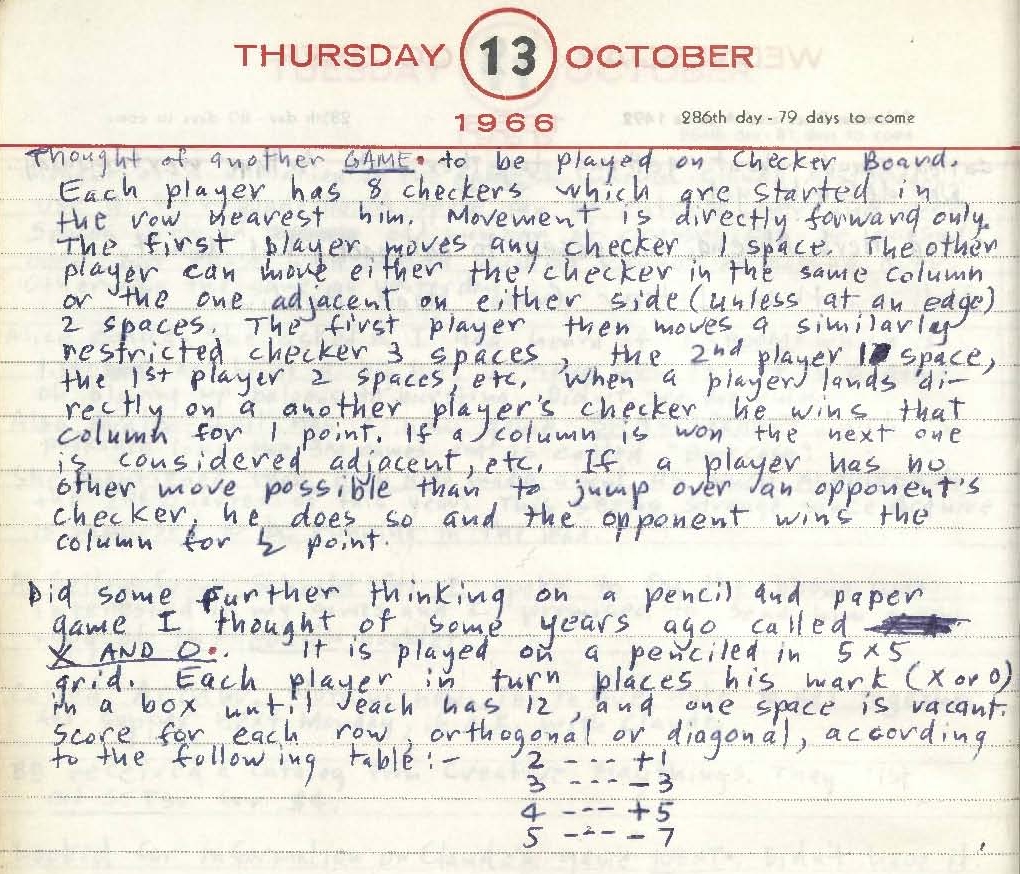 THURSDAY 13 OCTOBER
1966 286th day - 79 days to come
Thought of another GAME. to be played on Checker Board.
Each player has 8 checkers which are started in
the row nearest him. Movement is directly forward only.
The first player moves any checker 1 space. The other
player can move either the checker in the same column
or the one adjacent on either side (unless at an edge)
2 spaces. The first player then moves a similarly
restricted checker 3 spaces, the 2nd player 1 space,
the 1st player 2 spaces, etc. When a player lands di-
rectly on a another player's checker he wins that
column for 1 point. If a column is won the next one
is considered adjacent, etc. If a player has no
other move possible than to jump over an opponent's
checker, he does so and the opponent wins the
column for ½ point.
Did some further thinking on a pencil and paper
game I thought of some years ago called
X AND O.. It is played on a penciled in 5 x 5
grid. Each player in turn places his mark (X or O)
in a box until each has 12, and one space is vacant.
Score for each row, orthogonal or diagonal, according
to the following table:- 2 --- +1
3 --- -3
4 --- +5
5 --- -7